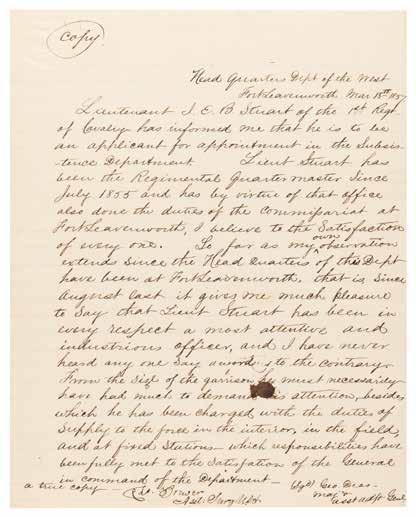 copy
Head Quarters Dept of the West
Fort Leavenworth Mar 18th 1857
Lieutenant J. E. B Stuart of the 1st Regt
of Cavalry has informed me that he is to be
an applicant for appointment in the Subsis-
tence Department Lieut Stuart has
been the Regimental Quartermaster Since
July 1855 and has by virtue of that office
also done the duties of the commissariat at
Fort Leavenworth, I believe to the Satisfaction
of every one. So far as my own observation
extends since the Head Quarters of this Dept
have been at Fort Leavenworth, that is since
August last it gives me much pleasure
to Say that Lieut Stuart has been in
every respect a most attentive and
industrious officer, and I have never
heard any one Say a word to the contrary.
From the Size of the garrison he must necessarily
have had much to demand his attention, besides
which he has been charged with the duties of
Supply to the force in the interior, in the field
and at fixed Stations – which responsibilities have
been fully met to the Satisfaction of the General
in command of the Department –
a true copy
Asst. Surg
Geo Deas
Asst adjt Genl